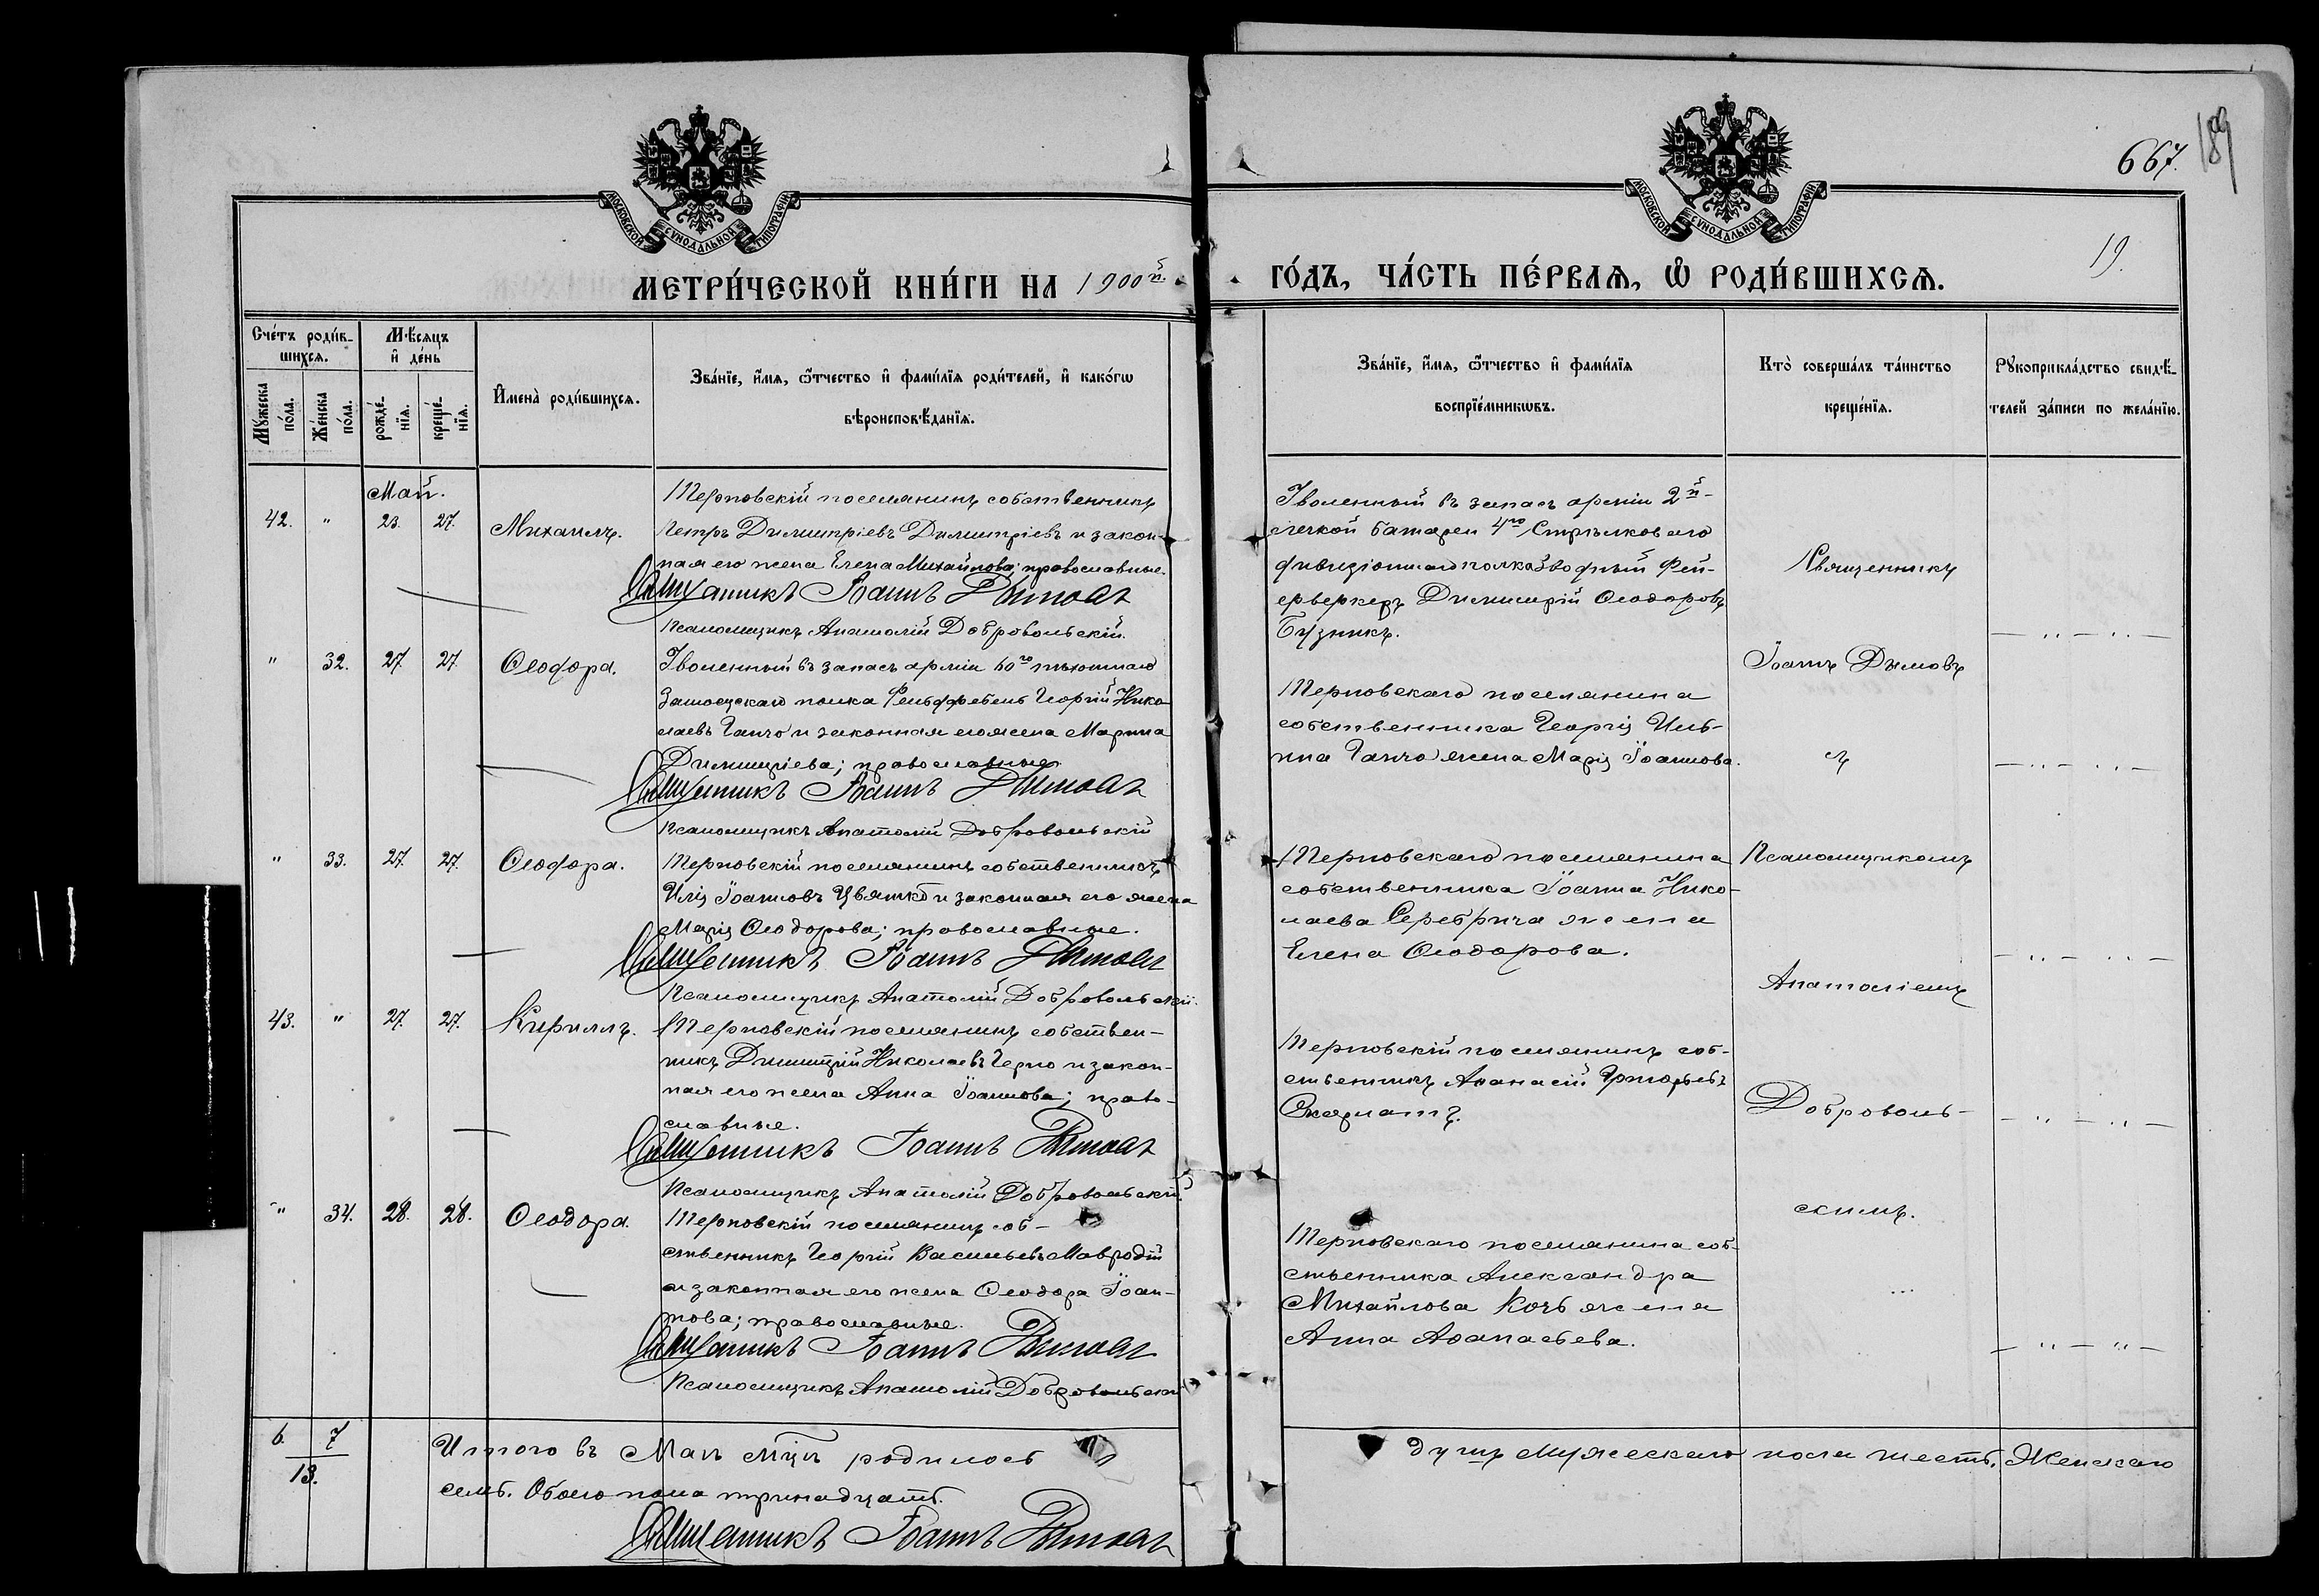 667.
189
19.
МОСКОВСКОЙ СУНОДАЛЬНОЙ ТИПОГРАФІИ
МОСКОВСКОЙ СУНОДАЛЬНОЙ ТИПОГРАФІИ
МЕТРИ́ЧЕСКОЙ КНИ́ГИ НА 1900й.
ГО́ДЪ, ЧА́СТЬ ПЕ́РВАѦ, Ѡ҆ РОДИ́ВШИХСѦ.
Сче́тъ роди́в-
шихсѧ.
Мꙋ́жеска по́ла.
Же́нска по́ла.
Мѣ́сѧцъ
и҆ де́нь
рожде́-
нїѧ.
креще́-
нїѧ.
И҆мена̀ роди́вшихсѧ.
Зва́нїе, и҆́мѧ, ѻ҆́тчество и҆ фами́лїѧ роди́телей, и҆ како́гѡ
вѣроисповѣ́данїѧ.
Зва́нїе, и҆́мѧ, ѻ҆́тчество и҆ фами́лїѧ
воспрїе́мникѡвъ.
Кто̀ соверша́лъ та́инство
креще́нїѧ.
Рꙋкоприкла́дство свидѣ́-
телей за́писи по жела́нїю.
Май.
42. " 23. 27. Михаилъ.
Терновскій поселянинъ собственникъ
Петръ Димитріевъ Димитріевъ и закон-
ная его жена Елена Михайлова; православные.
Священникъ Іоаннъ Дымовъ
Псаломщикъ Анатолій Добровольскій.
Уволенный въ запасъ арміи 2й-
легкой батареи 4го Стрѣлковаго
дивизіоннаго полка взводный Фей-
ерверкеръ Димитрій Ѳеодоровъ
Бузникъ.
Священникъ
Іоаннъ Дымовъ
съ
Псаломщикомъ
Анатоліемъ
Доброволь-
скимъ.
" 32. 27. 27. Ѳеодора.
Уволенный въ запасъ арміи 60го пѣхотнаго
Замосцскаго полка Фельдфебель Георгій Нико-
лаевъ Ганчо и законная его жена Марина
Димитріева; православные.
Священникъ Іоаннъ Дымовъ
Псаломщикъ Анатолій Добровольскій
Терновскаго поселянина
собственника Георгія Иль-
ина Ганчо жена Марія Іоаннова.
" 33. 27. 27. Ѳеодора.
Терновскій поселянинъ собственникъ
Илія Іоанновъ Цвятко и законная его жена
Марія Ѳеодорова; православные.
Священникъ Іоаннъ Дымовъ
Псаломщикъ Анатолій Добровольскій.
Терновскаго поселянина
собственника Іоанна Нико-
лаева Серебрича жена
Елена Ѳеодорова.
43. " 27. 27. Кириллъ.
Терновскій поселянинъ собствен-
никъ Димитрій Николаевъ Черно и закон-
ная его жена Анна Іоаннова; право-
славные.
Священникъ Іоаннъ Дымовъ
Псаломщикъ Анатолій Добровольскій.
Терновскій поселянинъ соб-
ственникъ Аѳанасій Григорьевъ
" 34. 28. 28. Ѳеодора.
Терновскій поселянинъ соб-
ственникъ Георгій Васильевъ Мавродій
и законная его жена Ѳеодора Іоан-
нова; православные.
Священникъ Іоаннъ Дымовъ
Псаломщикъ Анатолій Добровольскій
Терновскаго поселянина соб-
ственника Александра
Михайлова Кочь жена
Анна Аѳанасьева.
6. 7
13.
Итого въ Маѣ мцѣ родилось душъ мужескаго пола шесть, Женскаго
семь. Обоего пола тринадцать.
Священникъ Іоаннъ Дымовъ